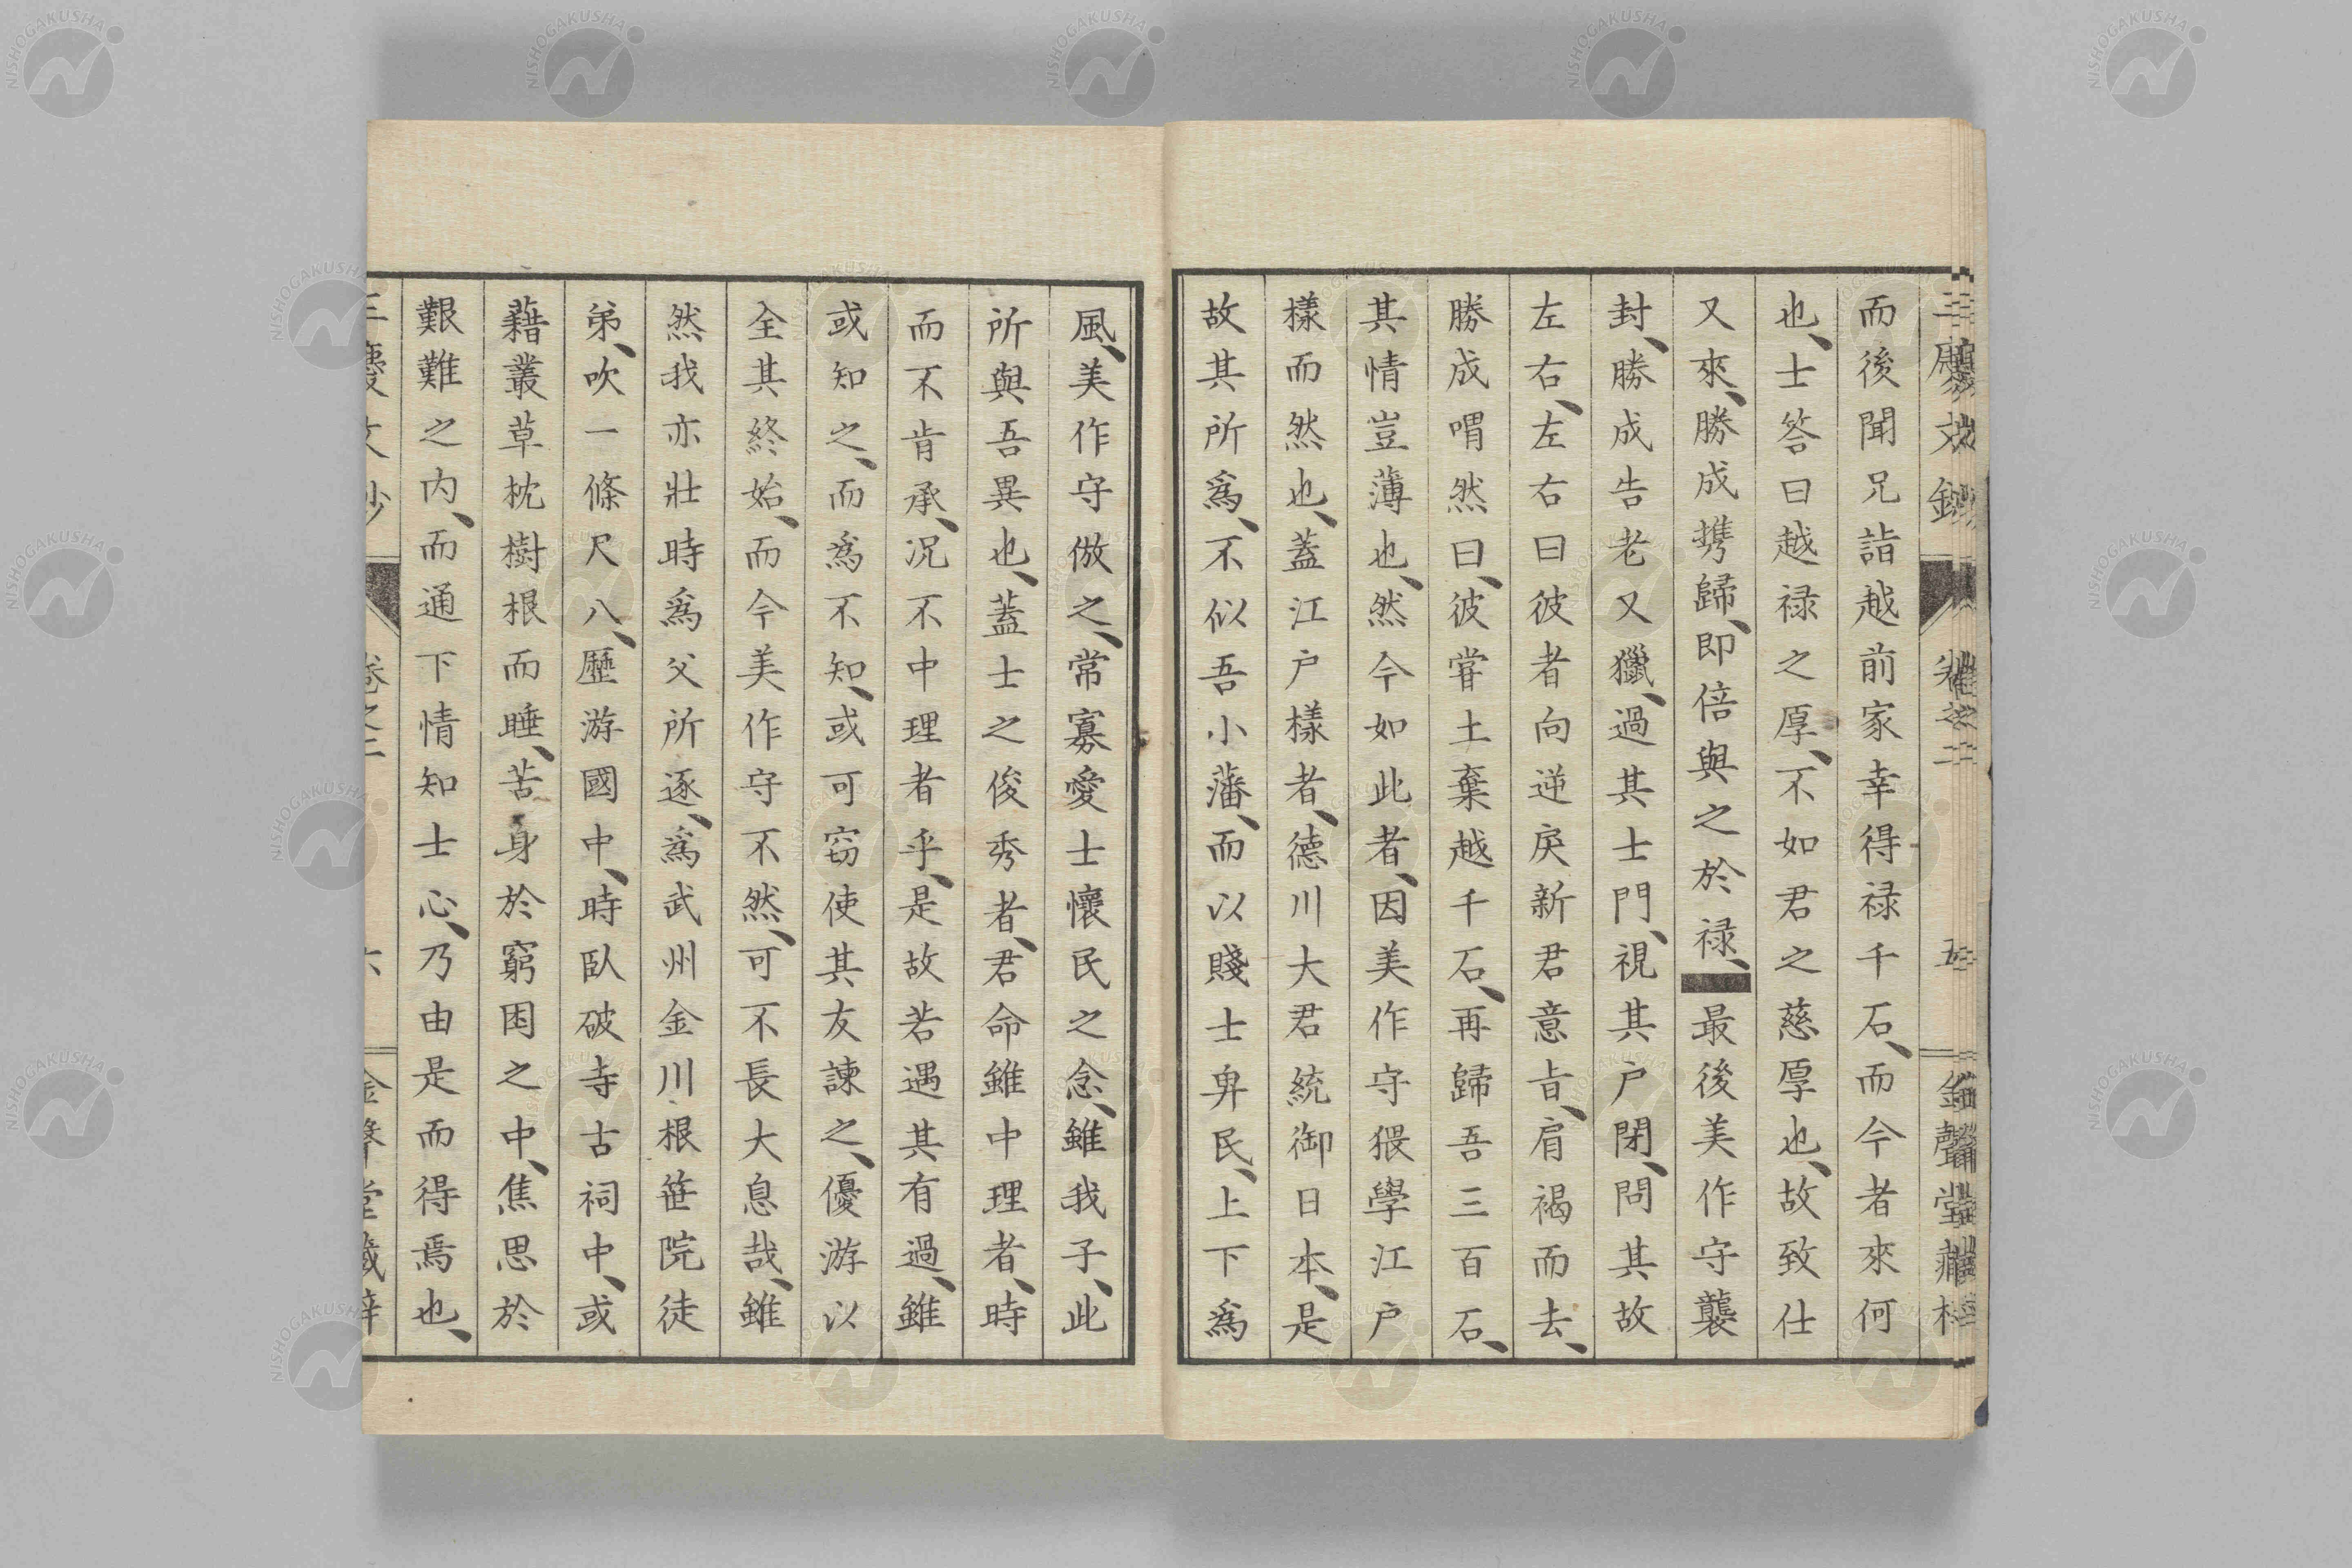 而後聞兄詣越前家幸得禄千石、而今者來何
也、士答曰越禄之厚、不如君之慈厚也、故致仕
又來、勝成携歸、即倍與之於禄、最後美作守襲
封、勝成告老又獵、過其士門、視其户閉、問其故
左右、左右曰彼者向逆戾新君意旨、肩褐而去、
勝成喟然曰、彼甞土棄越千石、再歸吾三百石、
其情豈薄也、然今如此者、因美作守猥學江户
樣而然也、蓋江户樣者、德川大君統御日本、是
故其所爲、不似吾小藩、而以賤士卑民、上下爲
風、美作守倣之、常寡愛士懷民之念、雖我子、此
所與吾異也、蓋士之俊秀者、君命雖中理者、時
而不肯承、况不中理者乎、是故若遇其有過、雖
或知之、而爲不知、或可窃使其友諫之、優游以
全其終始、而今美作守不然、可不長大息哉、雖
然我亦壯時爲父所逐、爲武州金川根笹院徒
弟、吹一條尺八、歷游國中、時臥破寺古祠中、或
藉叢草枕樹根而睡、苦身於窮困之中、焦思於
艱難之内、而通下情知士心、乃由是而得焉也、
三慶文鈔 卷之二 六 金聲堂藏梓
NISHOGAKUSHA